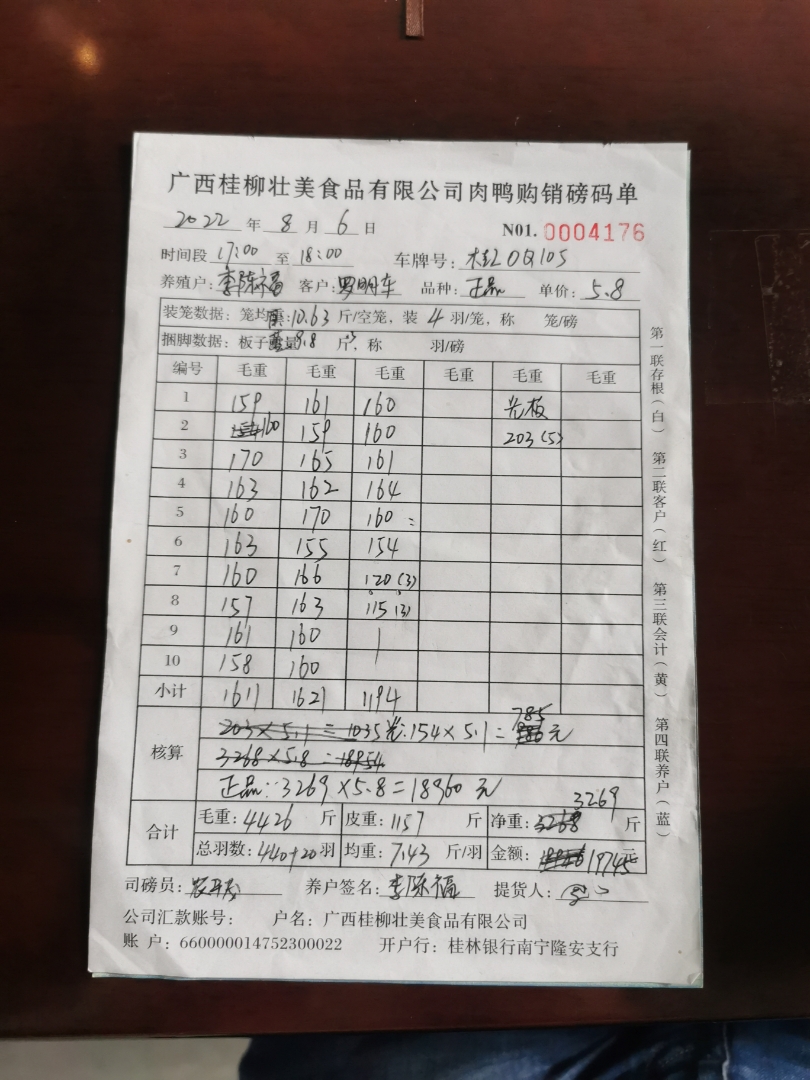 广西桂柳壮美食品有限公司肉鸭购销磅码单
2022 年 8 月 6 日 N01. 0004176
时间段 17:00 至 18:00 车牌号: 桂L0Q105
养殖户: 李陈福 客户: 罗明车 品种: 正品 单价: 5.8
装笼数据: 笼均重:10.63 斤/空笼, 装 4 羽/笼, 称 笼/磅
捆脚数据: 板子重量8.8 斤, 称 羽/磅
编号 毛重 毛重 毛重 毛重 毛重 毛重
1 159 161 160 光板
2 160 159 160 203(5)
3 170 165 161
4 163 162 164
5 160 170 160
6 163 155 154
7 160 166 120(3)
8 157 163 115(3)
9 161 160
10 158 160
小计 1611 1621 1194
核算 203×5.1=1035 光:154×5.1=785元
3268×5.8=18954
正品:3269×5.8=18960元
合计 毛重: 4426 斤 皮重: 1157 斤 净重: 3269 斤
总羽数: 440+20 羽 均重: 7.43 斤/羽 金额: 19745 元
司磅员: 养户签名: 李陈福 提货人:
公司汇款账号: 户名: 广西桂柳壮美食品有限公司
账 户: 660000014752300022 开户行: 桂林银行南宁隆安支行
第一联存根(白) 第二联客户(红) 第三联会计(黄) 第四联养户(蓝)